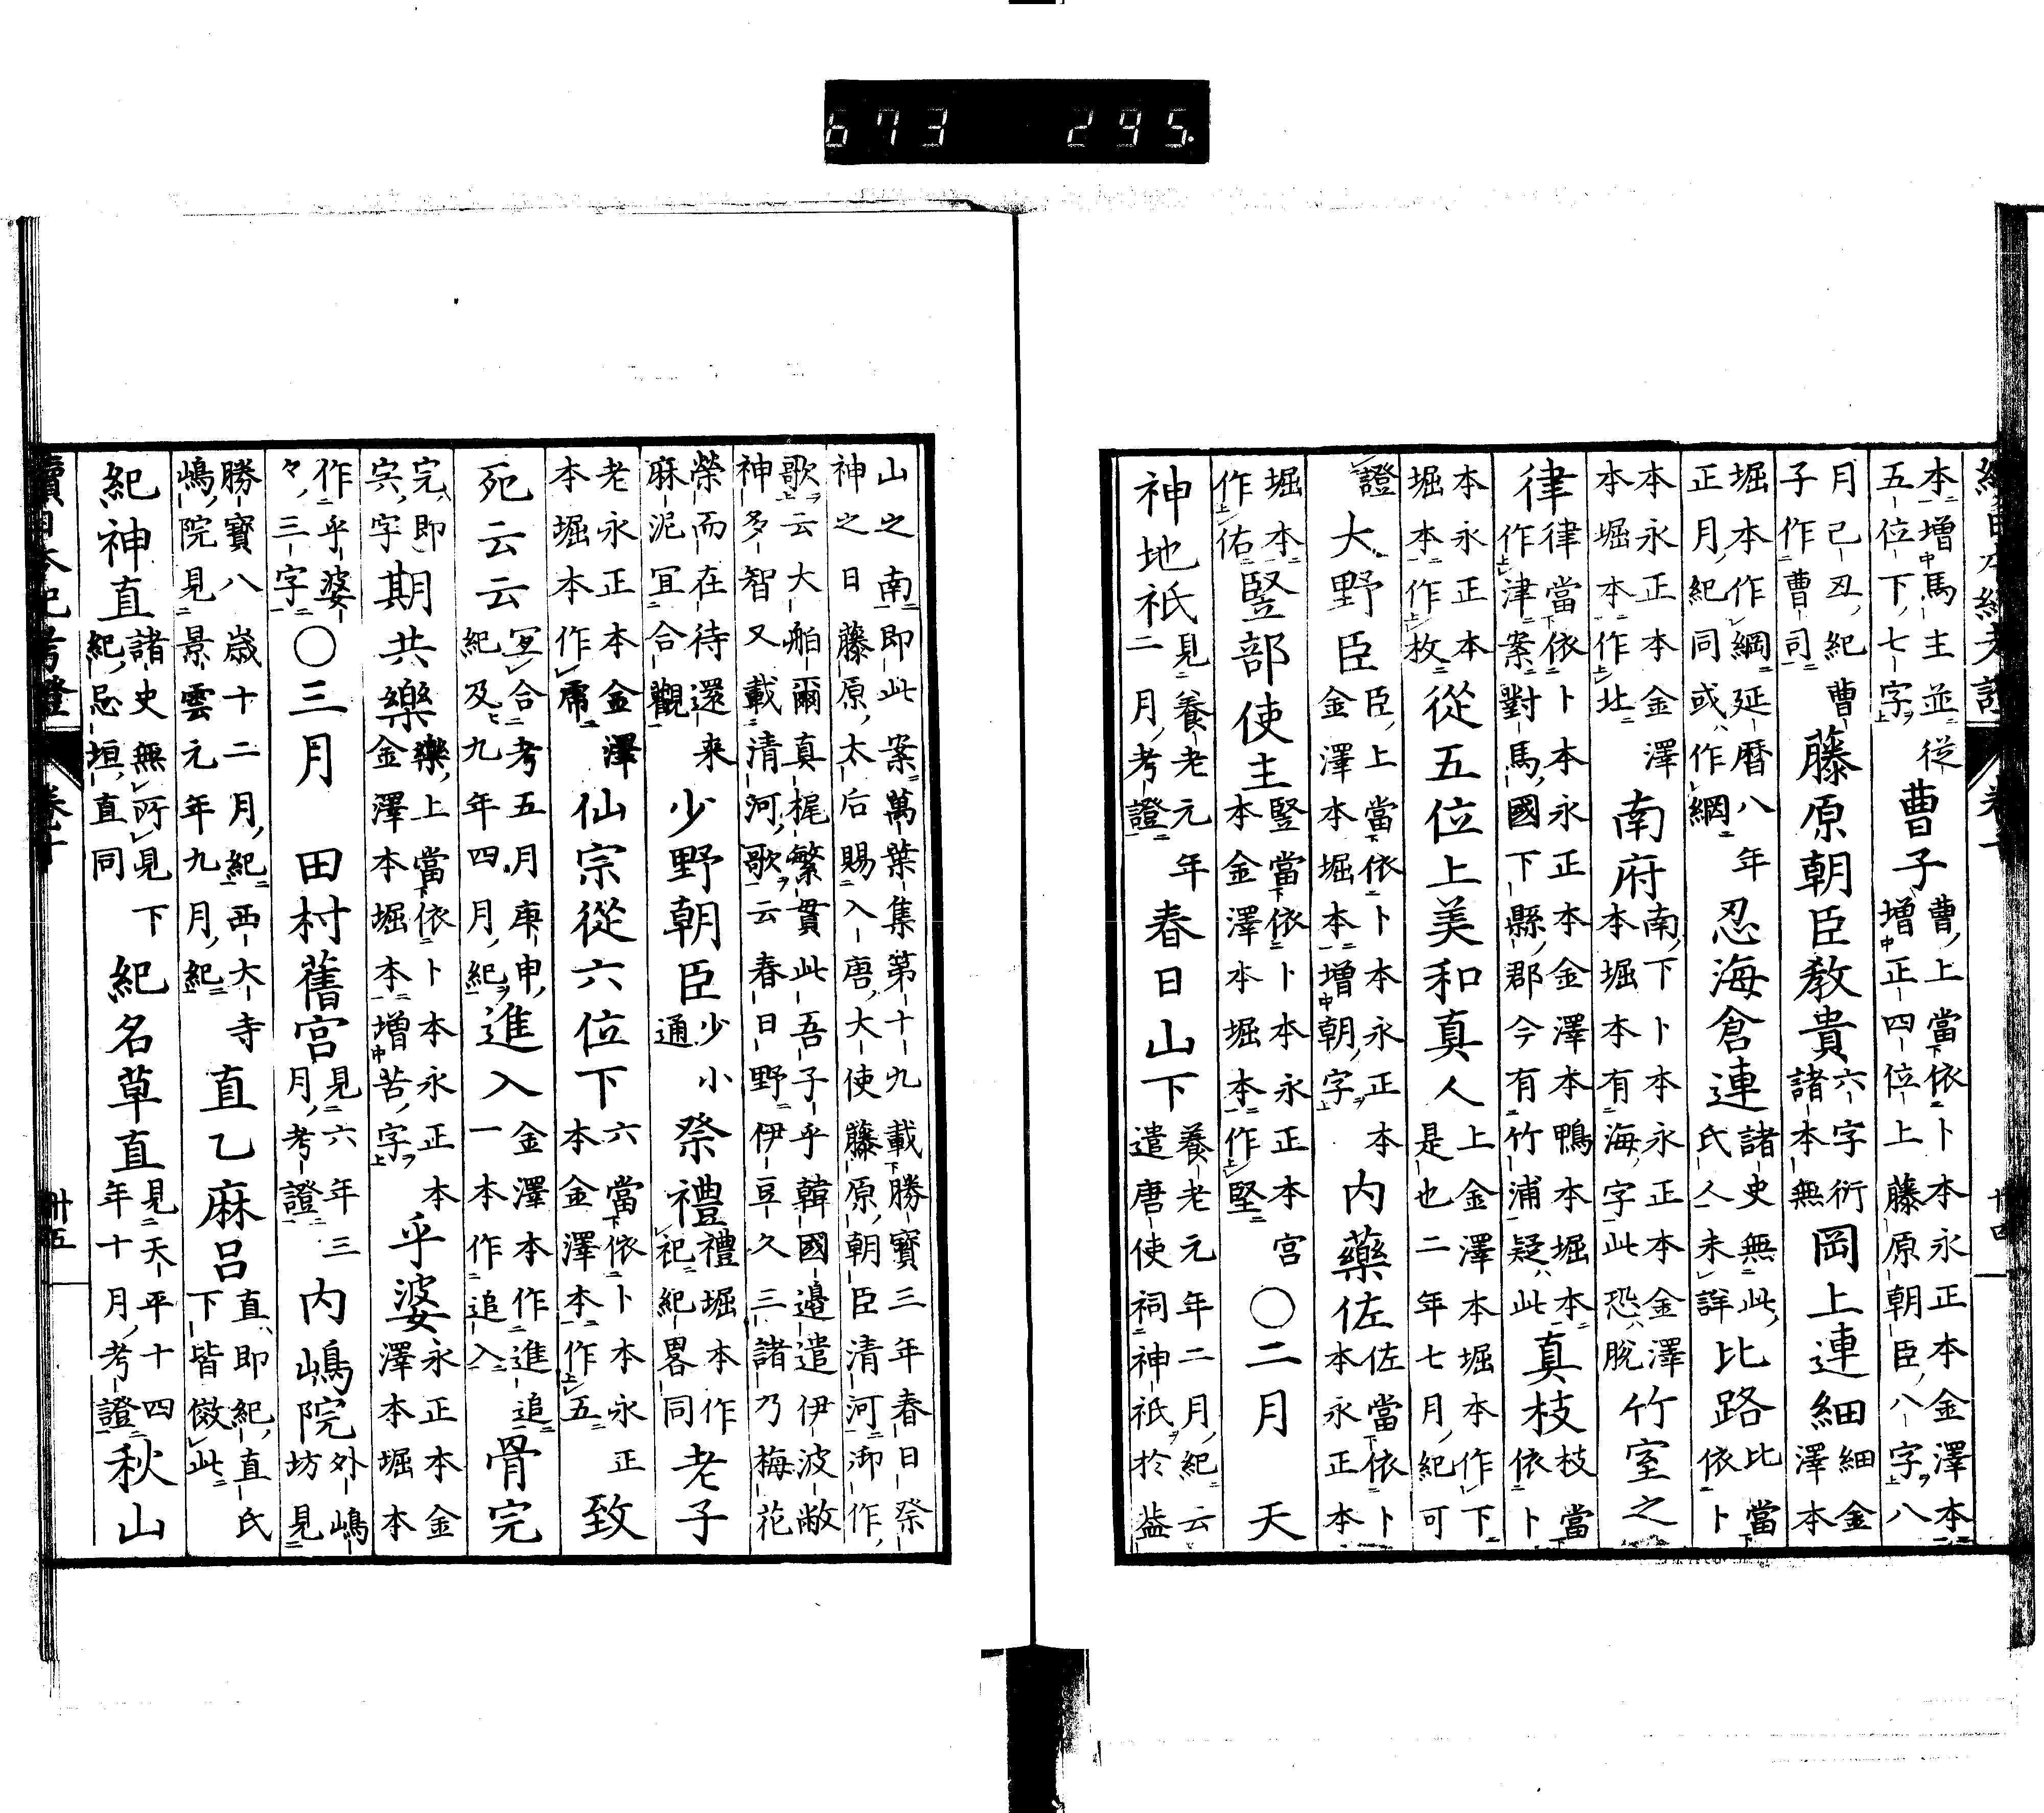 673 295.
本增馬主並從
五位下七字
曹子
曹上當依卜本永正本金澤本
增正四位上藤原朝臣八字八
月己丑紀曹
子作曹司
藤原朝臣教貴
六字衍
諸本無
岡上連細
細金
澤本
堀本作綱延曆八年
正月紀同或作綱
忍海倉連
諸史無此
氏人未詳
比路
比當
依卜
本永正本金澤
本堀本作北
南府
南下卜本永正本金澤
本堀本有海字此恐脫
竹室之
律
律當依卜本永正本金澤本鴨本堀本
作津案對馬國下縣郡今有竹浦疑此
真枝
枝當
依卜
本永正本
堀本作枚
從五位上美和真人
上金澤本堀本作下
是也二年七月紀可
證
大野臣
臣上當依卜本永正本
金澤本堀本增朝字
内藥佐
佐當依卜
本永正本
堀本
作佑
竪部使主
竪當依卜本永正本宮
本金澤本堀本作堅
〇二月
天
神地祇
見養老元年
二月考證
春日山下
養老元年二月紀云
遣唐使祠神祇於葢
山之南即此案萬葉集第十九載勝寶三年春日祭
神之日藤原太后賜入唐大使藤原朝臣清河御作
歌云大舶爾真梶繁貫此吾子乎韓國邊遣伊波敝
神多智又載清河歌云春日野伊豆久三諸乃梅花
榮而在待還来
麻泥冝合觀
少野朝臣
少小
通
祭禮
禮堀本作
祀紀畧同
老子
老永正本金澤
本堀本作席
仙宗從六位下
六當依卜本永正
本金澤本作五
致
死云云
冝合考五月庚申
紀及九年四月紀
進入
金澤本作進追
一本作追入
骨完
完即
宍字
期共樂
樂上當依卜本永正本
金澤本堀本增苦字
乎婆
永正本金
澤本堀本
作乎婆
々三字
〇三月
田村舊宮
見六年三
月考證
内嶋院
外嶋
坊見
勝寶八歲十二月紀西大寺
嶋院見景雲元年九月紀
直乙麻呂
直即紀直氏
下皆倣此
紀神直
諸史無所見下
紀忌垣直同
紀名草直
見天平十四
年十月考證
秋山
續日本紀考證 卷十 卅五